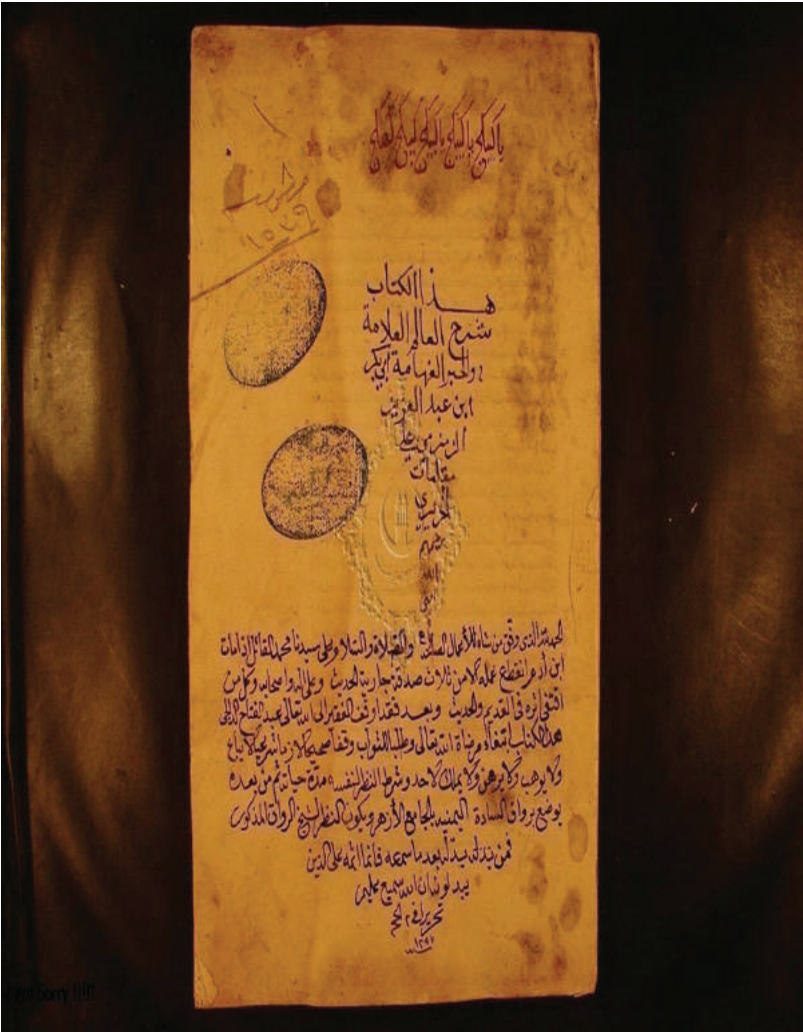 ياكيكج ياكيكج ياكيكج
١٥٣٩
هذا الكتاب
شرح العالم العلامة
والحبر الفهامة أبي بكر
ابن عبد العزيز
الزمزمي على
مقامات
الحريري
رحمهم
الله
الحمد لله الذي وفق من شاء للأعمال الصالحة والصلاة والسلام على سيدنا محمد القائل اذا مات
ابن آدم انقطع عمله الا من ثلاث صدقة جارية الحديث وعلى آله واصحابه وكل من
اقتفى اثره في القديم والحديث وبعد فقد اوقف الفقير الى الله تعالى عبد الفتاح
هذا الكتاب ابتغاء مرضاة الله تعالى وطلبا للثواب وقفا صحيحا لازما شرعيا لا يباع
ولا يوهب ولا يرهن ولا يملك لاحد وشرط النظر لنفسه مدة حياته ثم من بعده
يوضع برواق السادة اليمنيه بالجامع الأزهر ويكون النظر لشيخ الرواق المذكور
فمن بدله بعد ما سمعه فانما اثمه على الذين
يبدلونه ان الله سميع عليم
تحريرا في
١٢٩٥